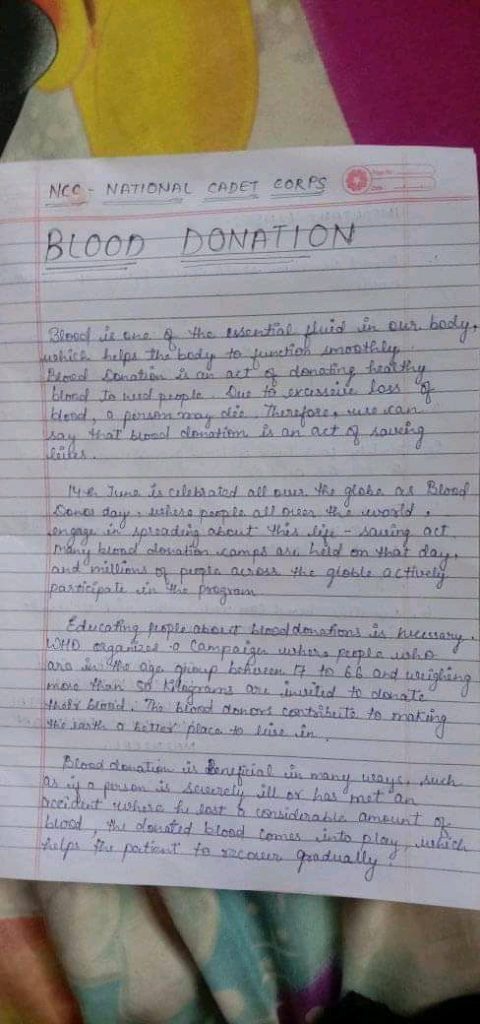 NCC - NATIONAL CADET CORPS
BLOOD DONATION
Blood is one of the essential fluid in our body,
which helps the body to function smoothly.
Blood Donation is an act of donating healthy
blood to need people. Due to excessive loss of
blood, a person may die. Therefore, we can
say that blood donation is an act of saving
lives.
14th June is celebrated all over the globe as Blood
Donor day, where people all over the world,
engage in spreading about this life - saving act.
Many blood donation camps are held on that day,
and millions of people across the globle actively
participate in the program.
Educating people about blood donations is necessary.
WHO organizes a Campaign where people who
are in the age group between 17 to 66 and weighing
more than 50 kilograms are invited to donate
their blood. The blood donors contribute to making
the earth a better place to live in.
Blood donation is Beneficial in many ways, such
as if a person is severely ill or has met an
accident where he lost a considerable amount of
blood, the donated blood comes into play, which
helps the patient to recover gradually.